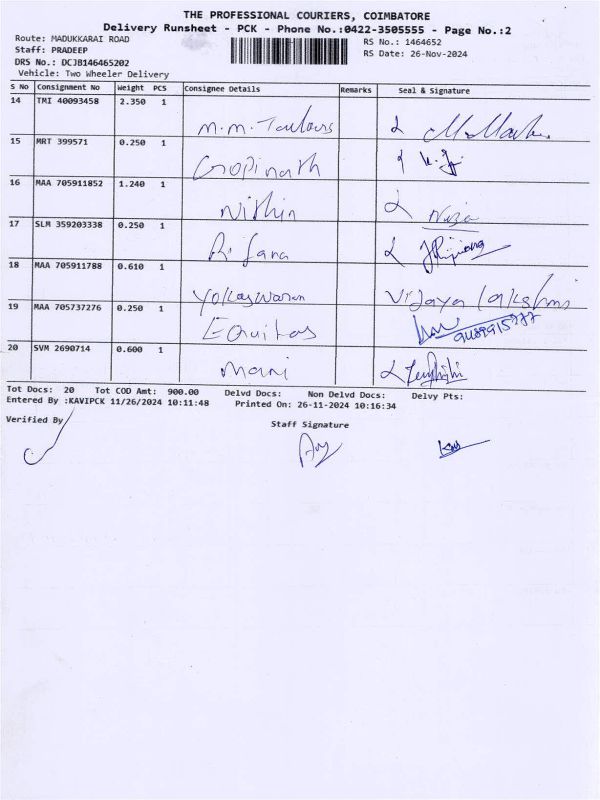 THE PROFESSIONAL COURIERS, COIMBATORE
Delivery Runsheet - PCK - Phone No.:0422-3505555 - Page No.:2
Route: MADUKKARAI ROAD RS No.: 1464652
Staff: PRADEEP RS Date: 26-Nov-2024
DRS No.: DCJB146465202
Vehicle: Two Wheeler Delivery
S No Consignment No Weight PCS Consignee Details Remarks Seal & Signature
14 TMI 40093458 2.350 1
M.M.
15 MRT 399571 0.250 1
Gopinath
16 MAA 705911852 1.240 1
Nithin
17 SLM 359203338 0.250 1
Rifana
18 MAA 705911788 0.610 1
Yokaswaran Vijaya lakshmi
19 MAA 705737276 0.250 1
Equitas
20 SVM 2690714 0.600 1
Mani
Tot Docs: 20 Tot COD Amt: 900.00 Delvd Docs: Non Delvd Docs: Delvy Pts:
Entered By :KAVIPCK 11/26/2024 10:11:48 Printed On: 26-11-2024 10:16:34
Verified By Staff Signature